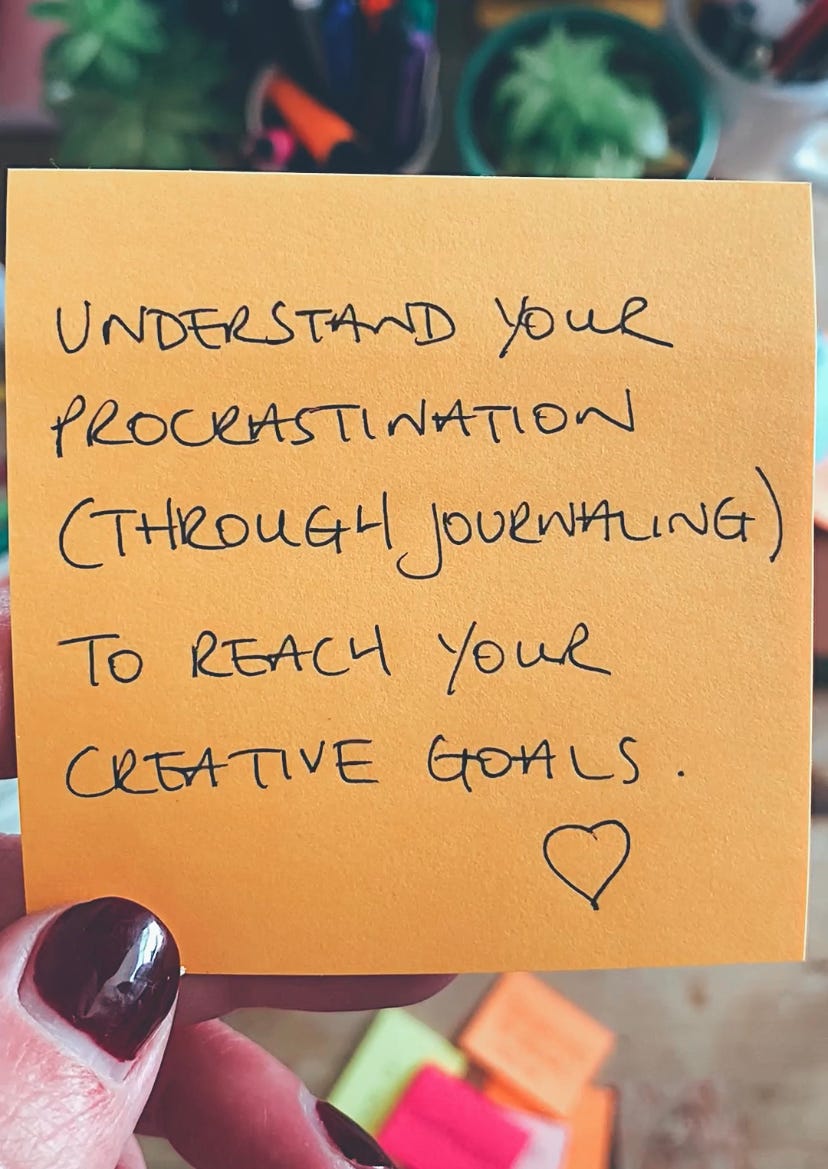 UNDERSTAND YOUR
PROCRASTINATION
(THROUGH JOURNALING)
TO REACH YOUR
CREATIVE GOALS.